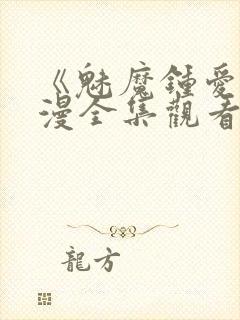 《魅魔鍾愛
漫全集觀看
龍方